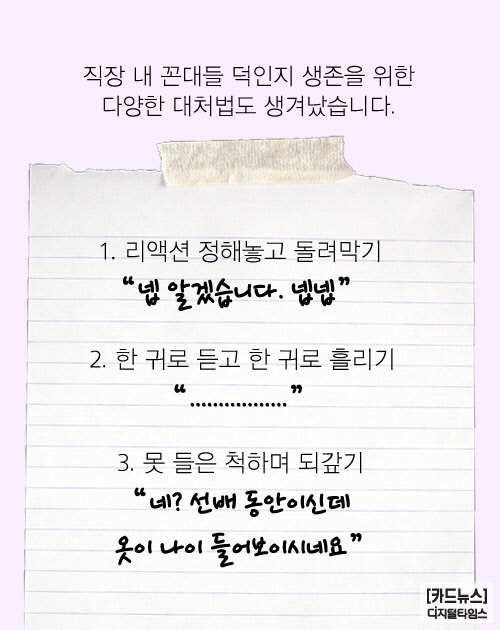 직장 내 꼰대들 덕인지 생존을 위한
다양한 대처법도 생겨났습니다.
1. 리액션 정해놓고 돌려막기
“넵 알겠습니다. 넵넵”
2. 한 귀로 듣고 한 귀로 흘리기
“.................”
3. 못 들은 척하며 되갚기
“네? 선배 동안이신데
옷이 나이 들어보이시네요”
[카드뉴스]
디지털타임스